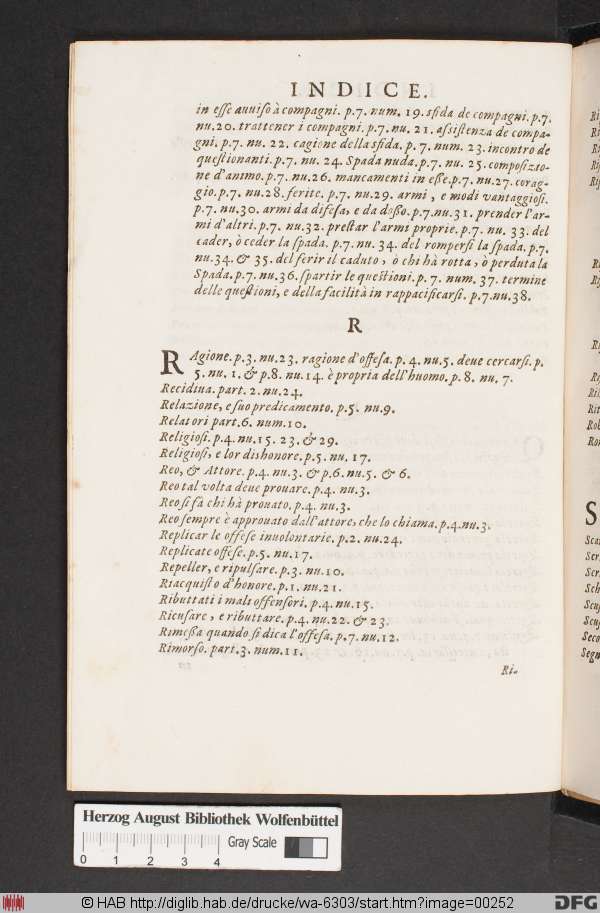 INDICE.
in eſſe auuiſo à compagni. p.7. num. 19. sfida de compagni. p.7.
nu.20. trattener i compagni. p.7. nu. 21. aſsiſtenza de compa-
gni. p.7. nu. 22. cagione della sfida. p. 7. num. 23. incontro de
queſtionanti. p.7. nu. 24. Spada nuda. p.7. nu. 25. compoſizio-
ne d'animo. p.7. nu.26. mancamenti in eſſe. p.7. nu.27. corag-
gio. p.7. nu.28. ferite. p.7. nu.29. armi, e modi vantaggioſi.
p.7. nu.30. armi da difeſa, e da doſſo. p.7.nu.31. prender l'ar-
mi d'altri. p.7. nu.32. preſtar l'armi proprie. p.7. nu. 33. del
cader, ò ceder la ſpada. p.7. nu. 34. del romperſi la ſpada. p.7.
nu.34. & 35. del ferir il caduto, ò chi hà rotta, ò perduta la
Spada. p.7. nu.36. ſpartir le queſtioni. p. 7. num. 37. termine
delle queſtioni, e della facilità in rappacificarſi. p.7.nu.38.
R
RAgione. p.3. nu.23. ragione d'offeſa. p. 4. nu.5. deue cercarſi. p.
5. nu. 1. & p.8. nu. 14. è propria dell'huomo. p. 8. nu. 7.
Recidiua. part. 2. nu.24.
Relazione, e ſuo predicamento. p.5. nu.9.
Relatori part.6. num.10.
Religioſi. p.4. nu.15. 23. & 29.
Religioſi, e lor dishonore. p.5. nu. 17.
Reo, & Attore. p.4. nu.3. & p.6. nu.5. & 6.
Reo tal volta deue prouare. p.4. nu.3.
Reo ſi fà chi hà prouato. p.4. nu.3.
Reo ſempre è approuato dall'attore, che lo chiama. p.4.nu.3.
Replicar le offeſe inuolontarie. p.2. nu.24.
Replicate offeſe. p.5. nu.17.
Repeller, e ripulſare. p.3. nu.10.
Riacquiſto d'honore. p.1. nu.21.
Ributtati i mali offenſori. p.4. nu.15.
Ricuſare, e ributtare. p.4. nu.22. & 23.
Rimeſſa quando ſi dica l'offeſa. p.7. nu.12.
Rimorſo. part.3. num.11.
Ri-
S
Herzog August Bibliothek Wolfenbüttel
Gray Scale
0 1 2 3 4
© HAB http://diglib.hab.de/drucke/wa-6303/start.htm?image=00252
DFG